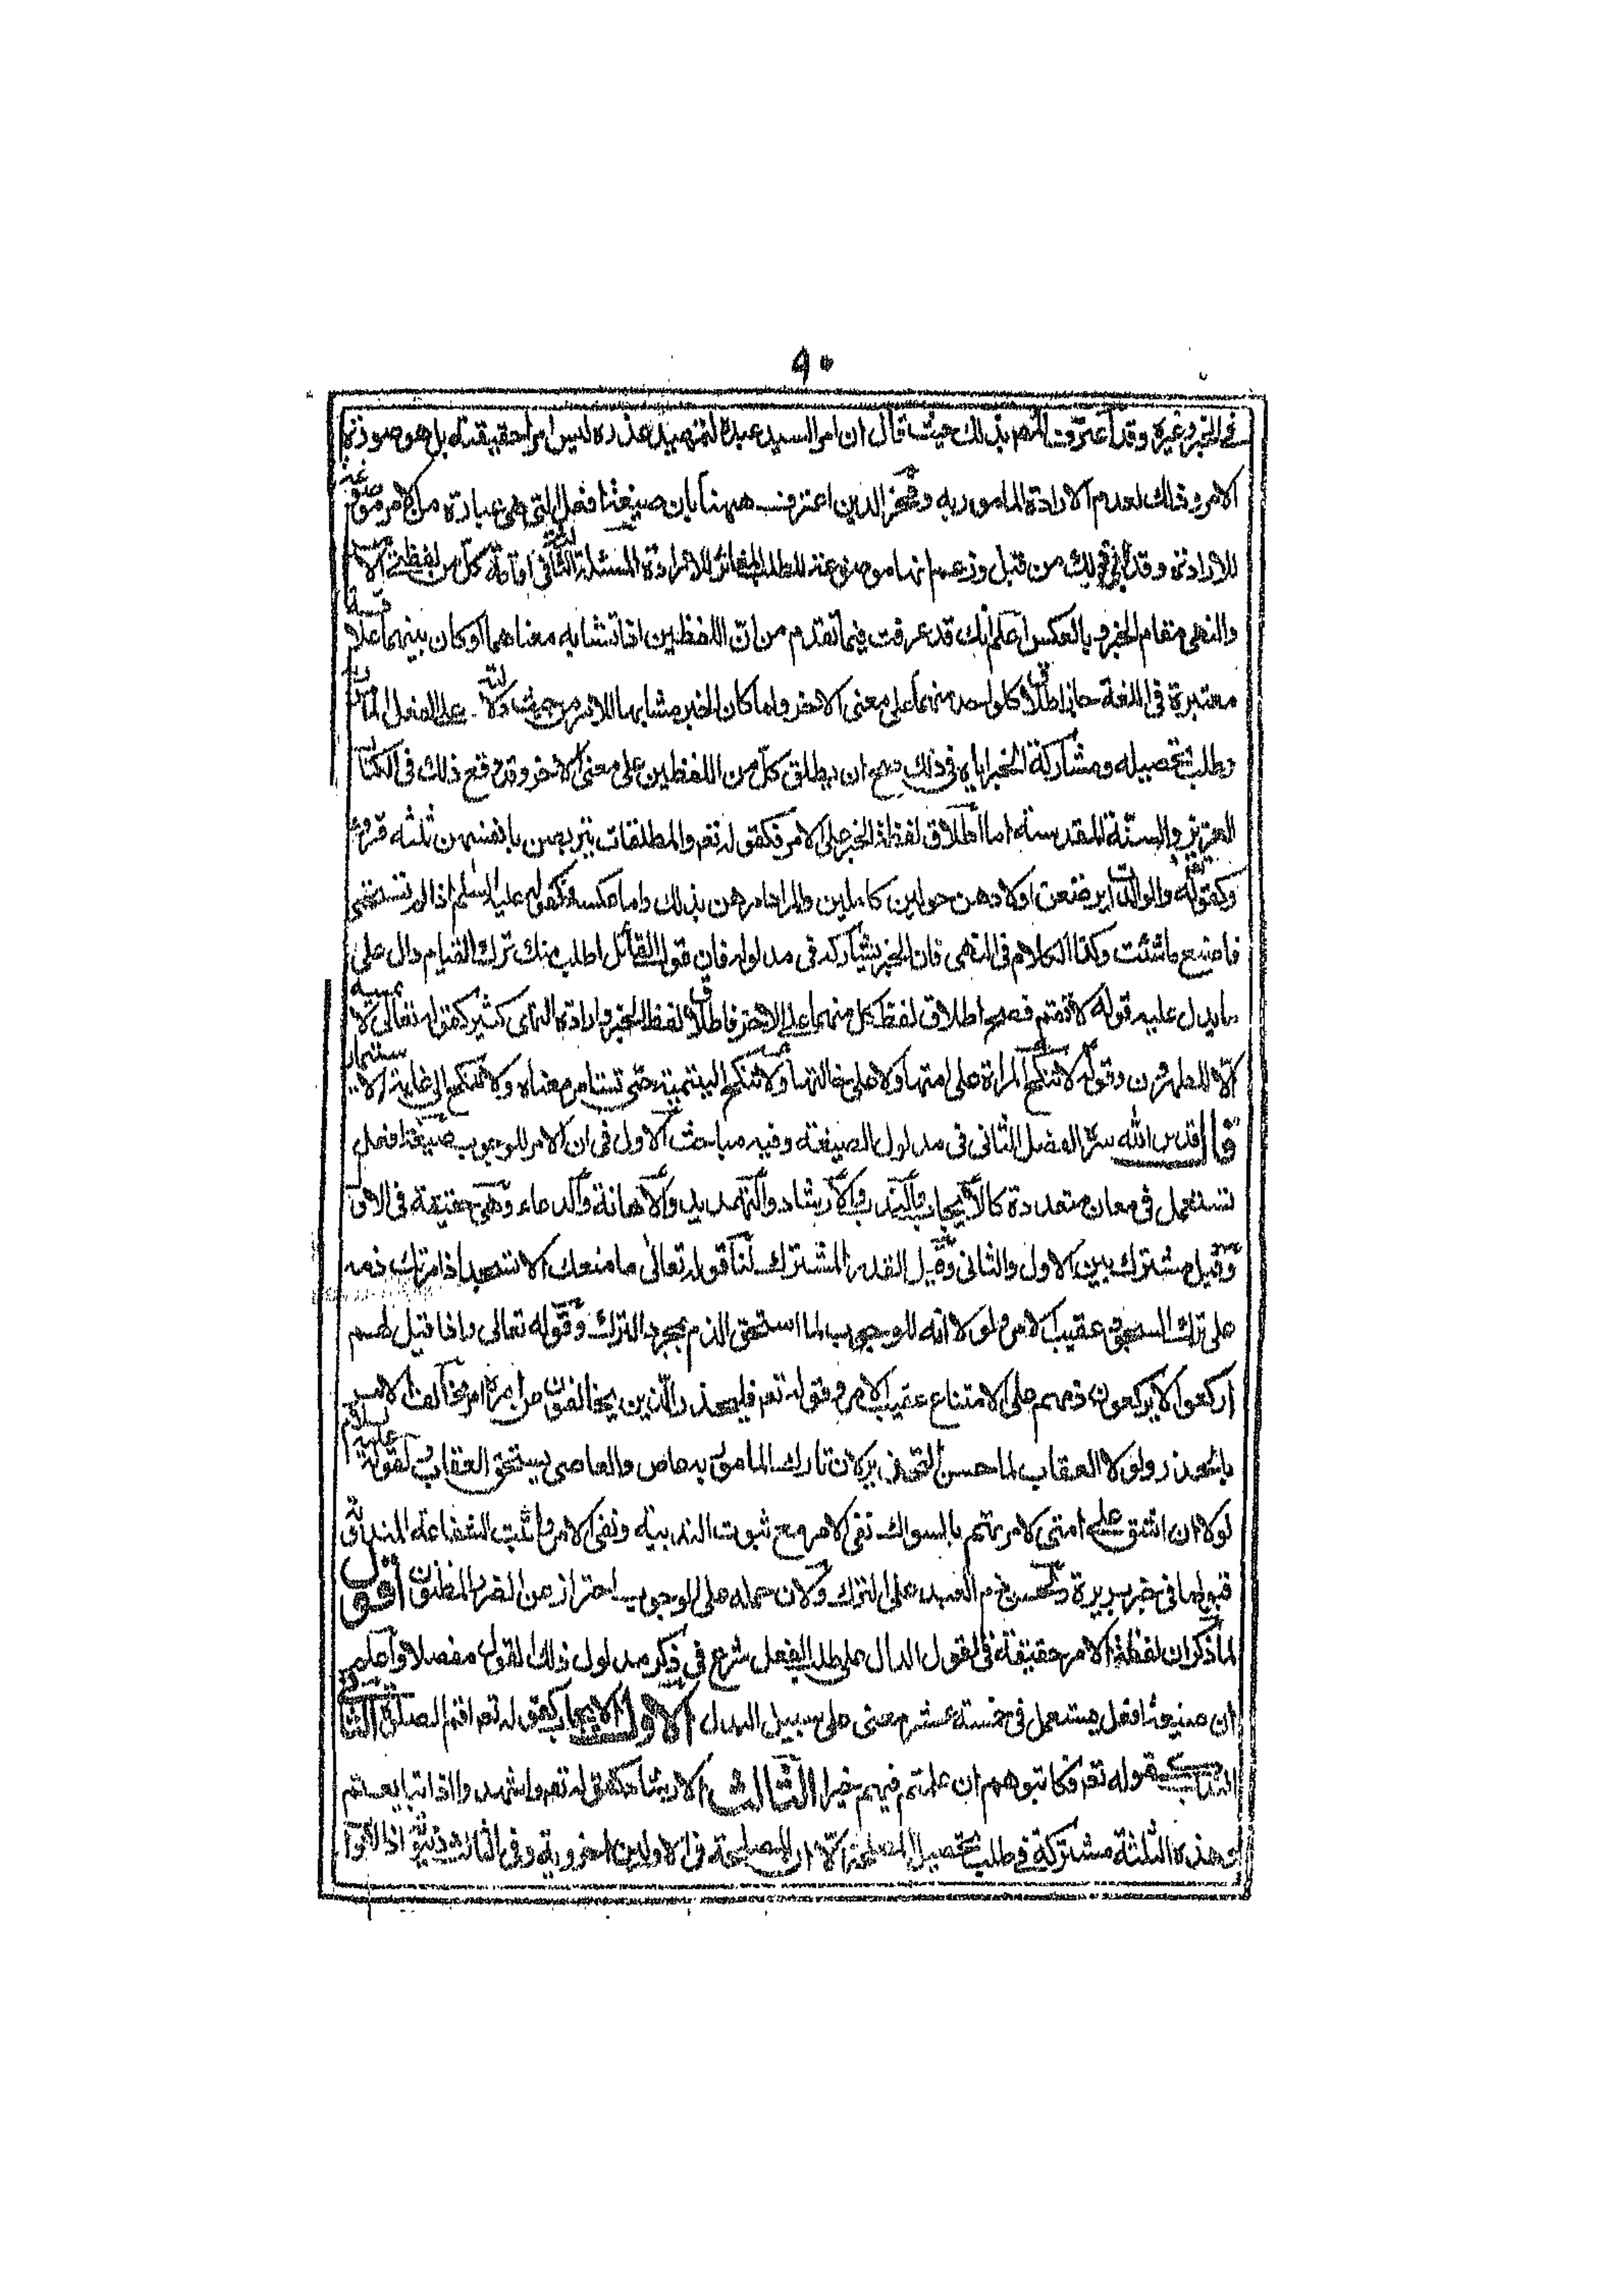 ٩٠
في الخبر وغيره وقد اعترف الخصم بذلك حيث قال ان امر السيد عبده لتمهيد عذره ليس امرا حقيقة بل هو صورة
الامر وذلك لعدم الارادة المامور به وفخر الدين اعترف ههنا بان صيغة افعل التي هي عبارة من الامر موضوعة
للارادة وقد من قبل وزعم انها موضوعة للطلب المغاير للارادة المسئلة الثانية اقامة كل من لفظتي الا
والنهي مقام الخبر وبالعكس اعلم انك قد عرفت فيما تقدم من ان اللفظين اذا تشابه معناهما وكان بينهما علاقة
معتبرة في اللغة جاز اطلاق كل واحد منهما على معنى الاخر ولما كان الخبر مشابها للامر من حيث دلالته على الفعل
وطلب تحصيله ومشاركة الخبر اياه في ذلك صح ان يطلق كل من اللفظين على معنى الاخر وقد وقع ذلك في الكتاب
العزيز والسنة المقدسة اما اطلاق لفظة الخبر على الامر فكقوله تعم والمطلقات يتربصن بانفسهن ثلثه قروء
وكقوله والوالدات يرضعن اولادهن حولين كاملين والمراد امرهن بذلك واما عكسه فكقوله عليه السلم اذا لم تستحي
فاصنع ما شئت وكذا الكلام في النهي فان الخبر يشاركه في مدلوله فان قول القائل اطلب منك ترك القيام دال على
ما يدل عليه قوله لا تقم فصح اطلاق لفظ كل منهما على الاخر فاطلاق لفظ الخبر وارادة النهي كثير كقوله تعالى لا يمسه
الا المطهرون وقوله لا تنكح المراة على عمتها ولا على خالتها ولا تنكح اليتيمة حتى تستامر معناه ولا تنكح الى غاية الاستيمار
قال قدس الله سره الفصل الثاني في مدلول الصيغة وفيه مباحث الاول في ان الامر للوجوب صيغة افعل
تستعمل في معان متعددة كالايجاب والندب والارشاد والتهديد والاهانة والدعاء وهي حقيقة في الاول
وقيل مشترك بين الاول والثاني وقيل القدر المشترك لنا قوله تعالى ما منعك الا تسجد اذ امرتك ذمه
على ترك السجود عقيب الامر ولولا انه للوجوب لما استحق الذم بمجرد الترك وقوله تعالى واذا قيل لهم
اركعوا لا يركعون ذمهم على الامتناع عقيب الامر وقوله تعم فليحذر الذين يخالفون عن امره امر مخالف الامر
بالحذر ولولا العقاب لما حسن التحذير ولان تارك المامور به عاص والعاصي يستحق العقاب لقوله عليه السلام
لولا ان اشق على امتي لامرتهم بالسواك نفى الامر مع ثبوت الندبية ونفى الامر واثبت الشفاعة المندوب
قبولها في خبر بريرة ولحسن ذم العبد على الترك ولان حمله على الوجوب احتراز عن الضرر المظنون اقول
لما ذكر ان لفظة الامر حقيقة في القول الدال على طلب الفعل شرع في ذكر مدلول ذلك القول مفصلا واعلم
ان صيغة افعل يستعمل في خمسة عشر معنى على سبيل البدل الاول الايجاب كقوله تعم اقم الصلوة الثاني
الندب كقوله تعم فكاتبوهم ان علمتم فيهم خيرا الثالث الارشاد كقوله تعم واشهدوا اذا تبايعتم
وهذه الثلثة مشتركة في طلب تحصيل المصلحة الا ان المصلحة في الاولين اخروية وفي الثالث